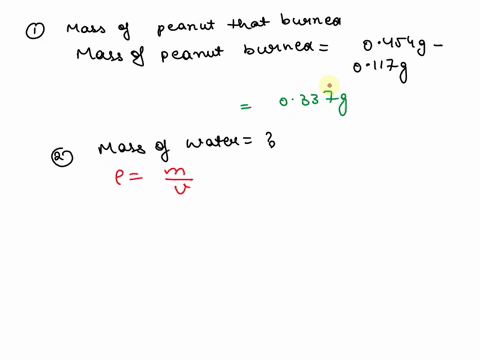 ① Mass of peanut that burned
Mass of peanut burned = 0.454g -
0.117g
= 0.337g
② Mass of water = ?
ρ = m/v